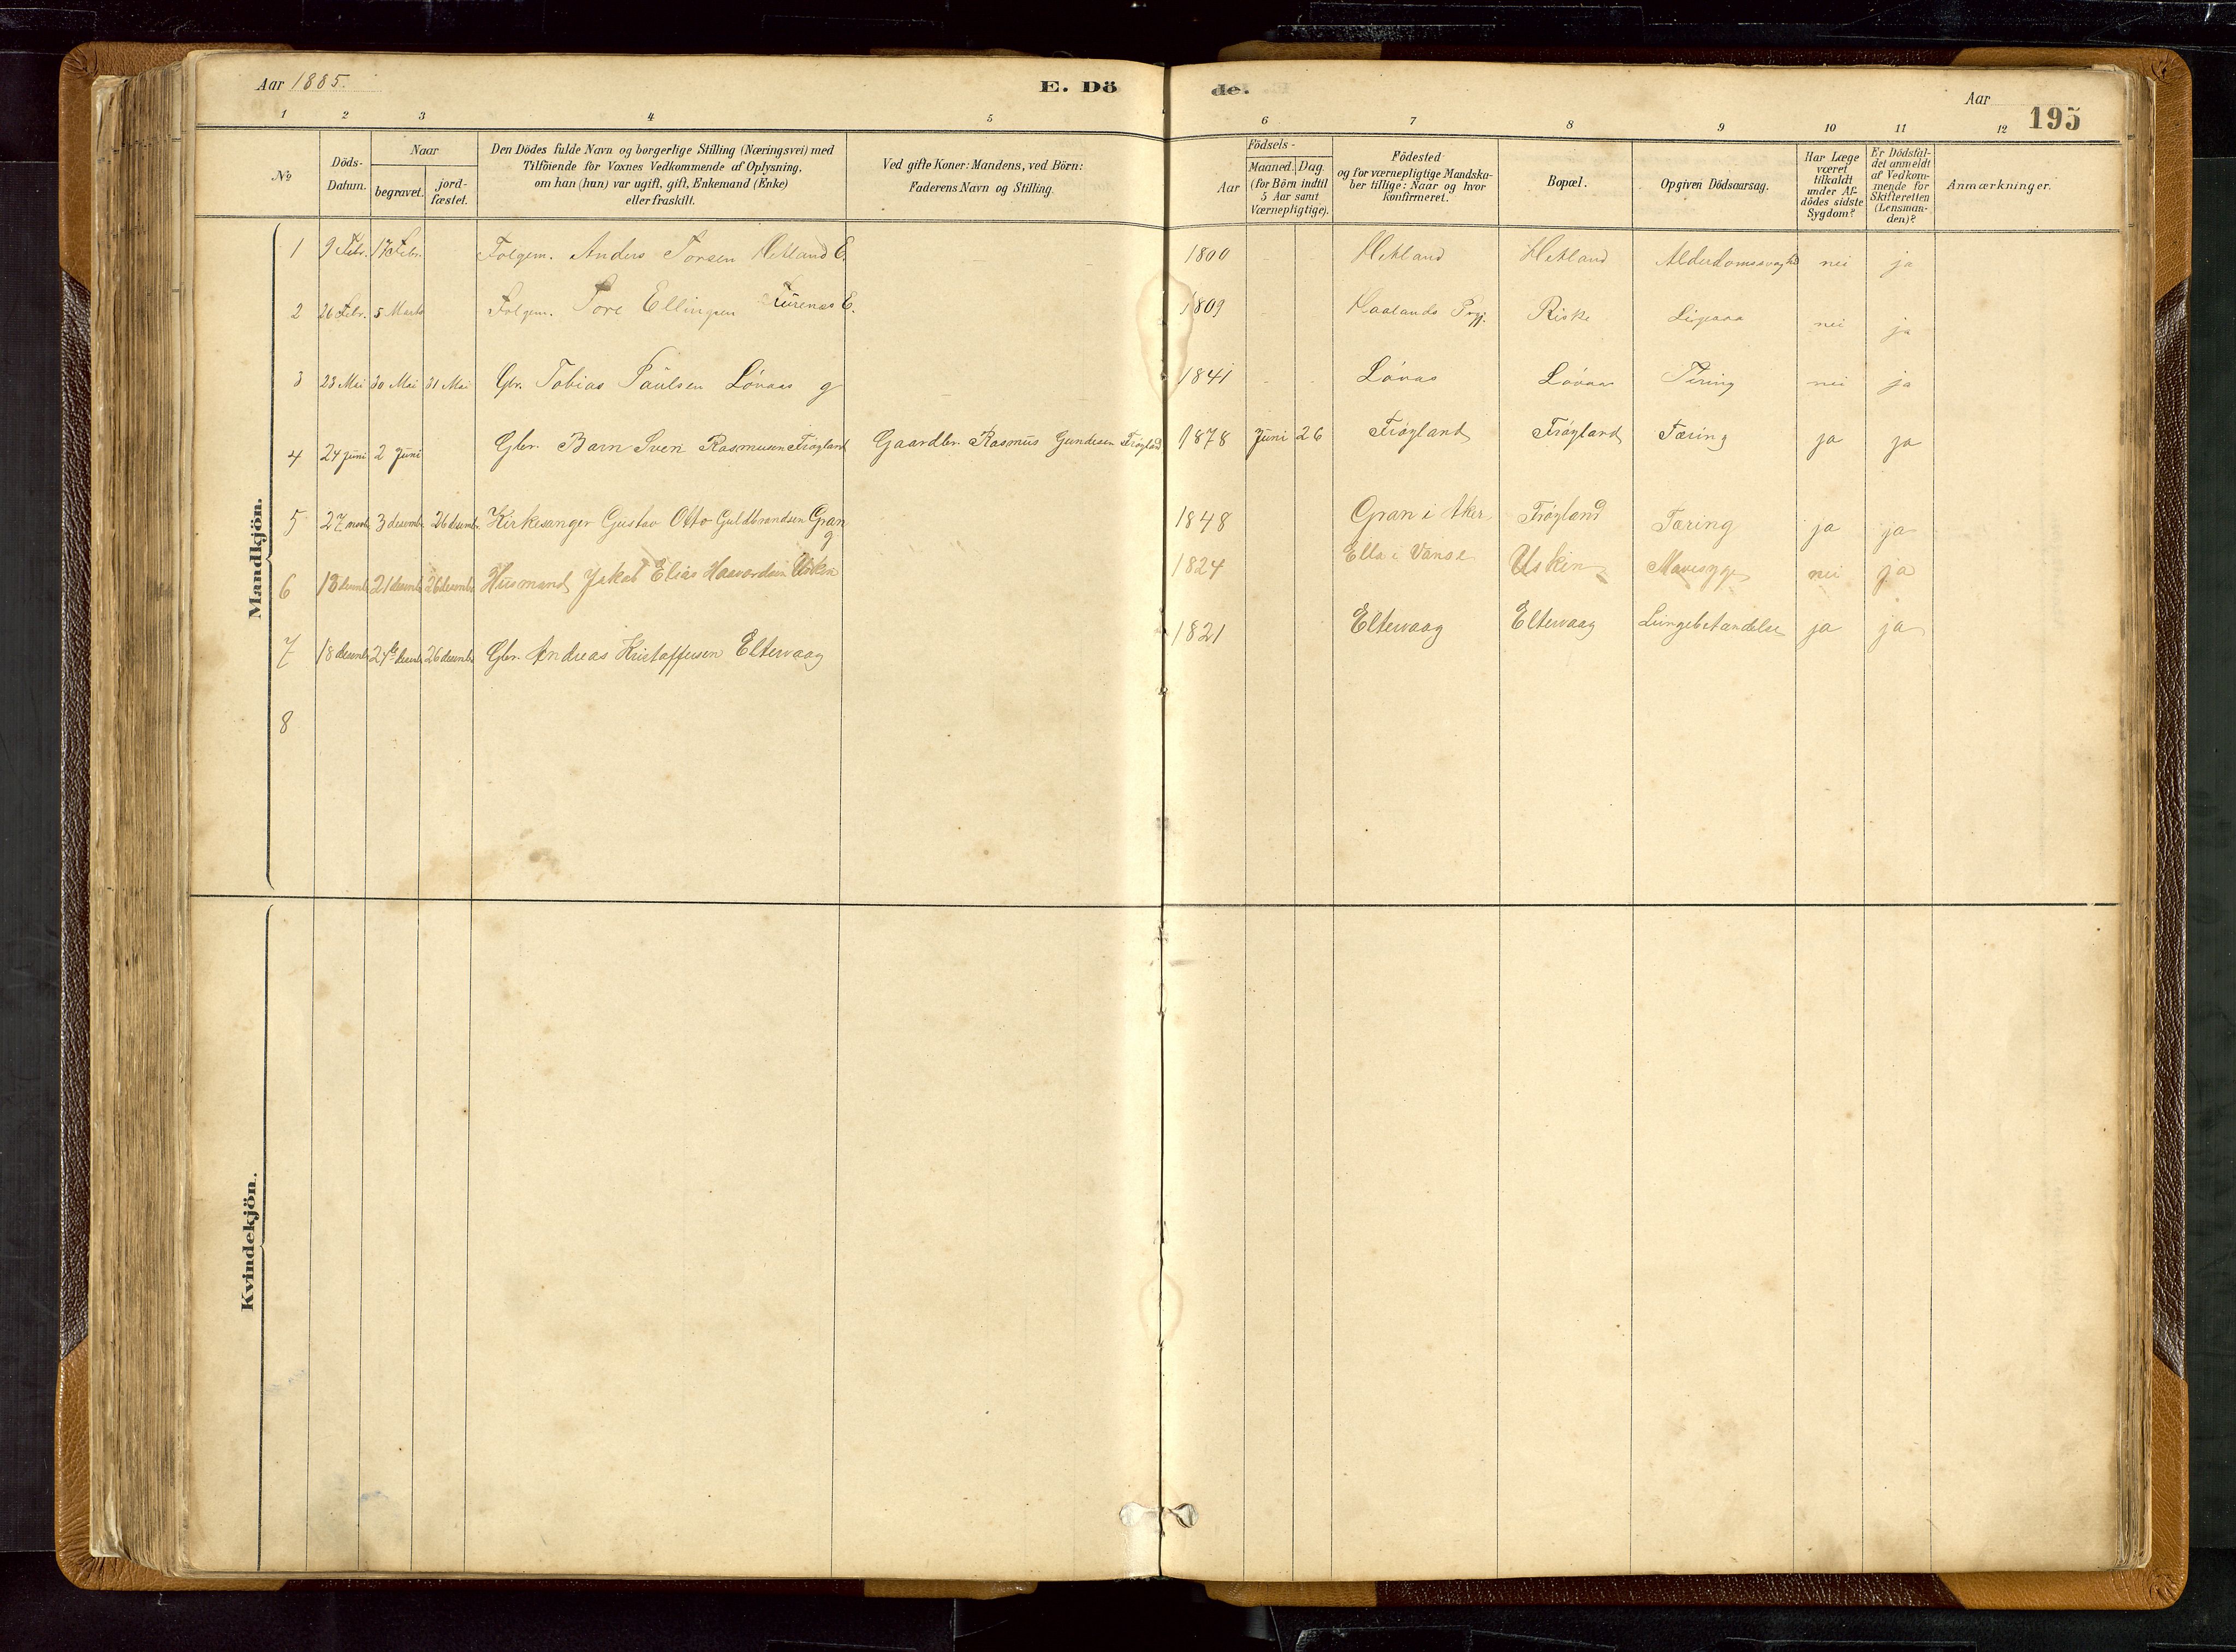 Aar 1885.
E. Dö
de.
Aar
195
1 2 3 4 5 6 7 8 9 10 11 12
No
Döds-
Datum.
Naar
begravet.
jord-
fæstet.
Den Dödes fulde Navn og borgerlige Stilling (Næringsvei) med
Tilföiende for Voxnes Vedkommende af Oplysning,
om han (hun) var ugift, gift, Enkemand (Enke)
eller fraskilt.
Ved gifte Koner: Mandens, ved Börn:
Faderens Navn og Stilling.
Födsels-
Aar
Maaned. Dag.
(for Börn indtil
5 Aar samt
Værnepligtige).
Födested
og for værnepligtige Mandska-
ber tillige: Naar og hvor
konfirmeret.
Bopæl.
Opgiven Dödsaarsag.
Har Læge
været
tilkaldt
under Af-
dödes sidste
Sygdom?
Er Dödsfal-
det anmeldt
af Vedkom-
mende for
Skifteretten
(Lensman-
den)?
Anmærkninger.
Mandkjön.
1 9 Febr. 17 Febr. Folgem. Anders Torsen Hetland E. 1800 Hetland Hetland Alderdomssvaghd nei ja
2 26 Febr. 5 Marts Folgem. Tore Ellingsen E. 1809 Haalands Prgj. Riske nei ja
3 23 Mai 30 Mai 31 Mai Gbr. Tobias Paulsen Lövaas g 1841 Lövas Lövaas Tæring nei ja
4 24 Juni 2 Juni Gbr. Barn Sven Rasmusen Fröyland Gaardbr. Rasmus Gundesen Fröyland 1878 Juni 26 Fröyland Fröyland Tæring ja ja
5 27 novb 3 desembr 26 desembr Kirkesanger Gustav Otto Guldbrandsen Gran g 1848 Gran i Aker Fröyland Tæring ja ja
6 13 desembr 21 desembr 26 desembr Husmand Jakob Elias Haavardsen Usken 1824 i Vanse Usken Mavesyge nei ja
7 18 desembr 24de desembr 26 desembr Gbr. Andreas Kristoffersen Eltervaag 1821 Eltervaag Eltervaag Lungebetændelse ja ja
8
Kvindekjön.